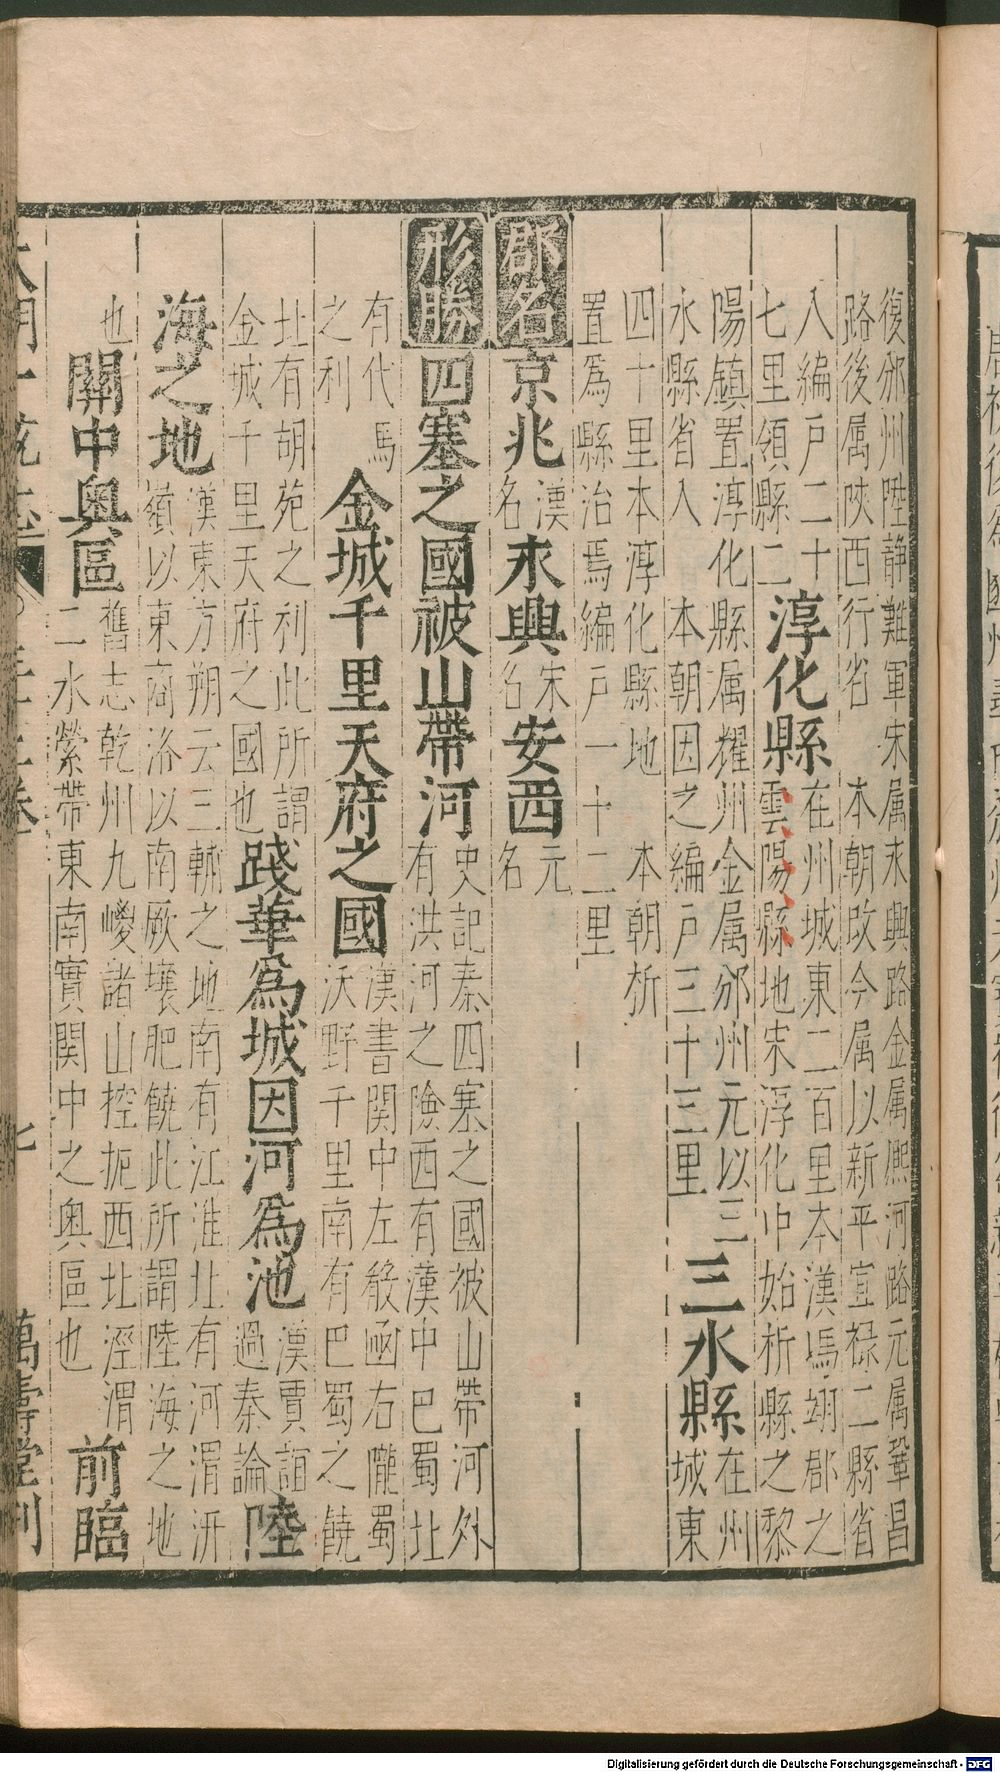 復邠州陞静難軍宋属永興路金属熈河路元属鞏昌
路後属陜西行省　本朝改今属以新平宜禄二縣省
入編戸二十　淳化縣　在州城東二百里本漢馮翊郡之
七里領縣二　雲陽縣地宋淳化中始析縣之黎
陽鎮置淳化縣属耀州金属邠州元以三　三水縣　在州
水縣省入　本朝因之編戸三十三里　城東
四十里本淳化縣地　本朝析
置爲縣治焉編戸一十二里
郡名　京兆　漢名　永興　宋名　安西　元名
形勝　四塞之國被山帶河　史記秦四塞之國彼山帶河外
有洪河之險西有漢中巴蜀北
有代馬之利　金城千里天府之國　漢書関中左殽凾右隴蜀
沃野千里南有巴蜀之饒
北有胡苑之利此所謂
金城千里天府之國也　踐華爲城因河爲池　漢賈誼過秦論　陸
海之地　漢東方朔云三輔之地南有江淮北有河渭汧
嶺以東商洛以南厥壤肥饒此所謂陸海之地
也　關中奥區　舊志乾州九嵕諸山控扼西北涇渭
二水縈帶東南實関中之奥區也　前臨
大明一統志
七
萬壽堂刊
Digitalisierung gefördert durch die Deutsche Forschungsgemeinschaft - DFG